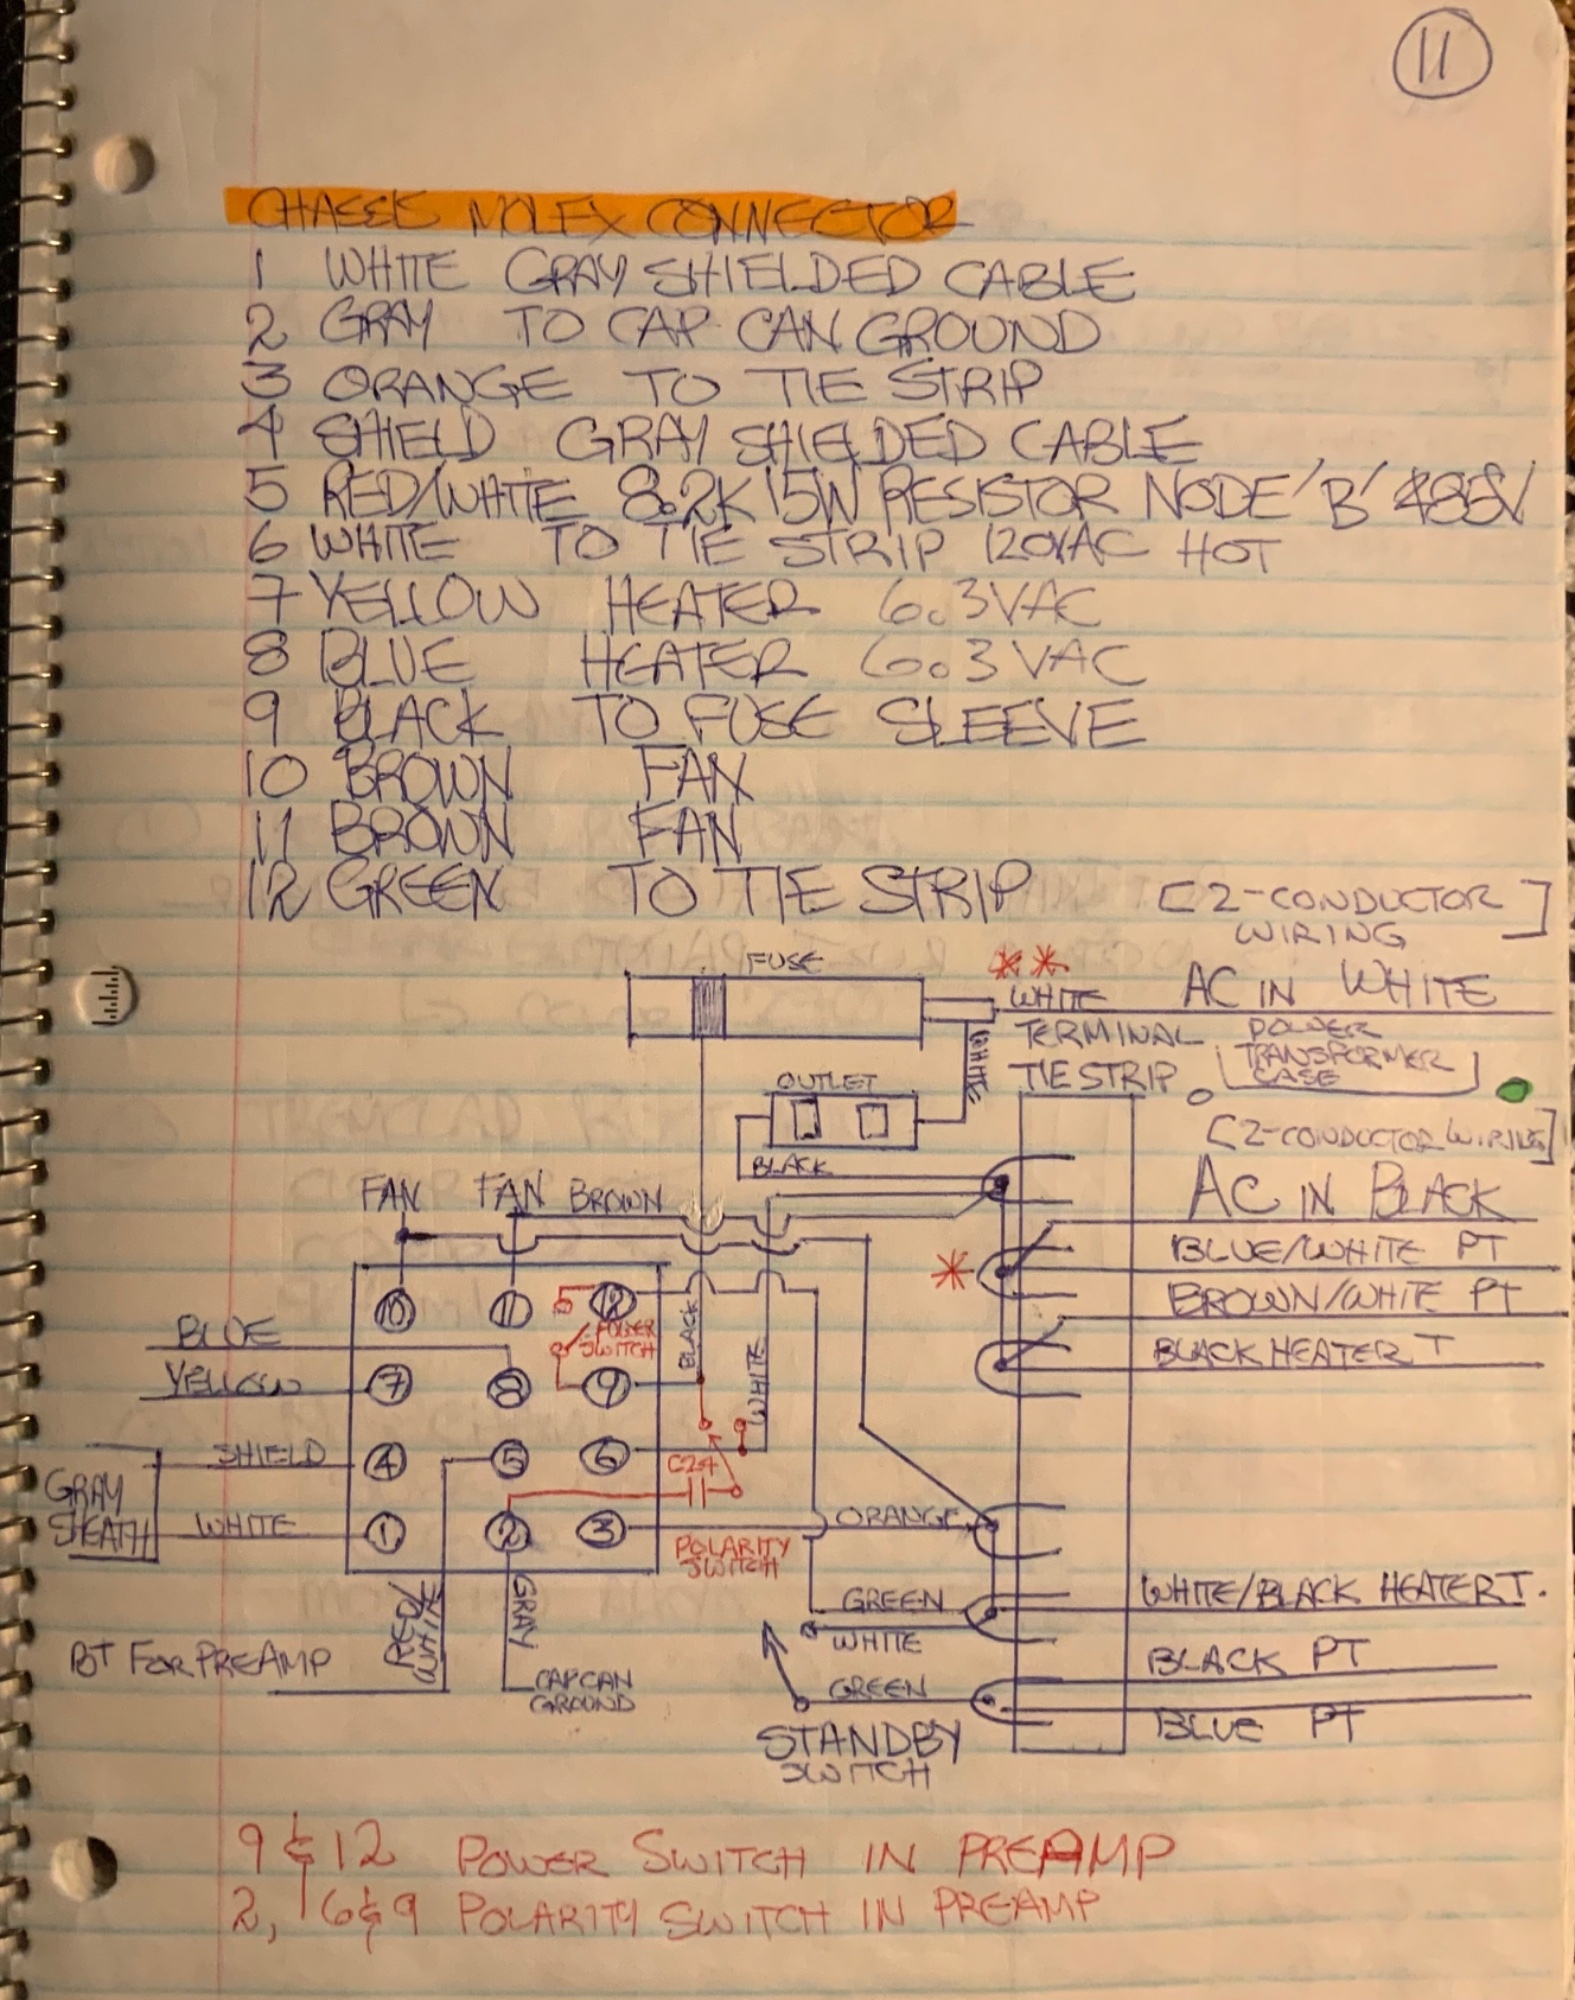 11
CHASSIS MOLEX CONNECTOR
1 WHITE GRAY SHIELDED CABLE
2 GRAY TO CAP CAN GROUND
3 ORANGE TO TIE STRIP
4 SHIELD GRAY SHIELDED CABLE
5 RED/WHITE 8.2K 15W RESISTOR NODE 'B' 488V
6 WHITE TO TIE STRIP 120VAC HOT
7 YELLOW HEATER 6.3VAC
8 BLUE HEATER 6.3VAC
9 BLACK TO FUSE SLEEVE
10 BROWN FAN
11 BROWN FAN
12 GREEN TO TIE STRIP
[2-CONDUCTOR WIRING]
FUSE
** WHITE AC IN WHITE
WHITE
TERMINAL TIE STRIP
POWER TRANSFORMER CASE
OUTLET
[2-CONDUCTOR WIRING]
BLACK
AC IN BLACK
FAN FAN BROWN
*
BLUE/WHITE PT
BROWN/WHITE PT
10 11 12
POWER SWITCH
BLACK
WHITE
BLUE
BLACK HEATER T
YELLOW
7 8 9
SHIELD
4 5 6
C24
GRAY SHEATH
WHITE
1 2 3
ORANGE
POLARITY SWITCH
RED/WHT
GRAY
GREEN
WHITE/BLACK HEATER T.
WHITE
B+ FOR PREAMP
CAP CAN GROUND
BLACK PT
GREEN
BLUE PT
STANDBY SWITCH
9 & 12 POWER SWITCH IN PREAMP
2, 6 & 9 POLARITY SWITCH IN PREAMP